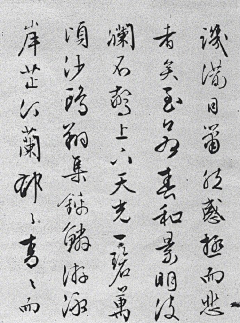 譏滿目蕭然感極而悲
者矣至若春和景明波
瀾不驚上下天光一碧萬
頃沙鷗翔集錦鱗游泳
岸芷汀蘭郁々青々而